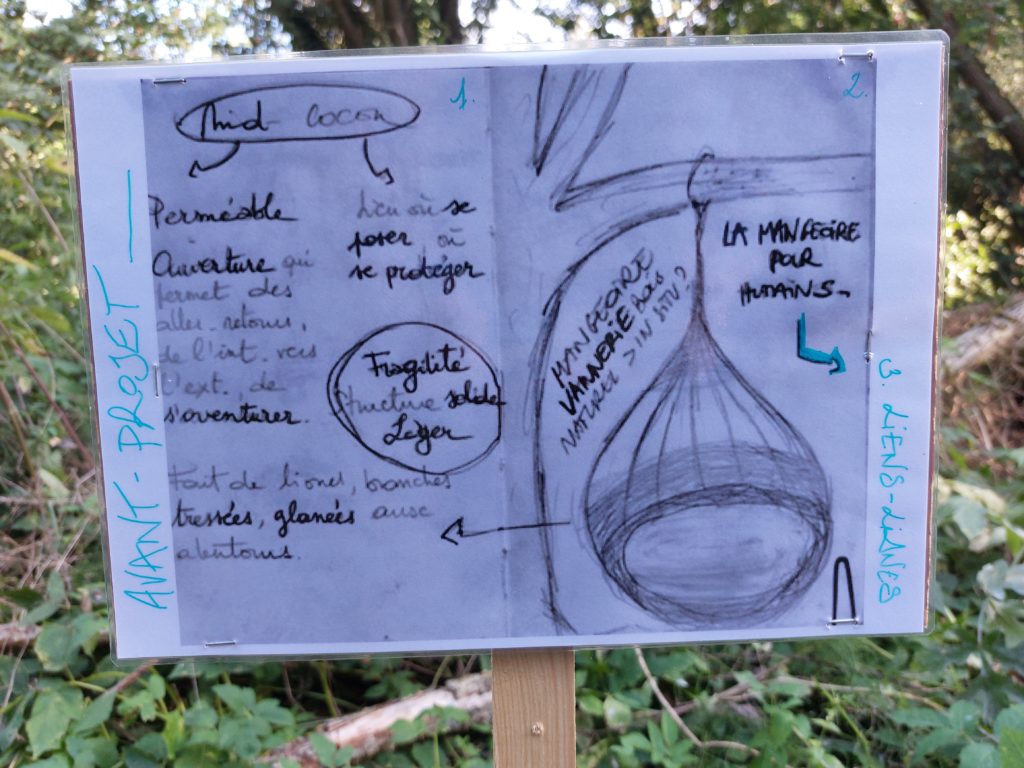 AVANT-PROJET
1.
Nid-cocon
Perméable
Ouverture qui
permet des
aller-retours,
de l'int. vers
l'ext., de
s'aventurer.
Lieu où se
poser où
se protéger
Fragilité
Structure solide
Léger
Fait de lianes, branches
tressées, glanées aux
alentours.
2.
MANGEOIRE
VANNERIE BOIS
NATUREL > IN SITU?
LA MANGEOIRE
POUR
HUMAINS-
3. LiENS-LiANES